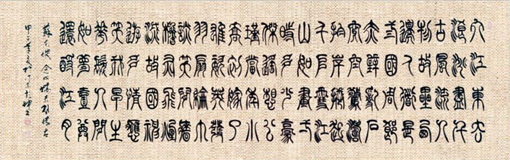 大江東去
浪淘盡千
古風流人
物故壘西
邊人道是
三國周郎
赤壁亂石
穿空驚濤
拍岸捲起
千堆雪江
山如畫一
時多少豪
傑遙想公
瑾當年小
喬初嫁了
雄姿英發
羽扇綸巾
談笑間檣
櫓灰飛煙
滅故國神
遊多情應
笑我早生
華髮人間
如夢一尊
還酹江月
蘇子瞻念奴嬌赤壁懷古